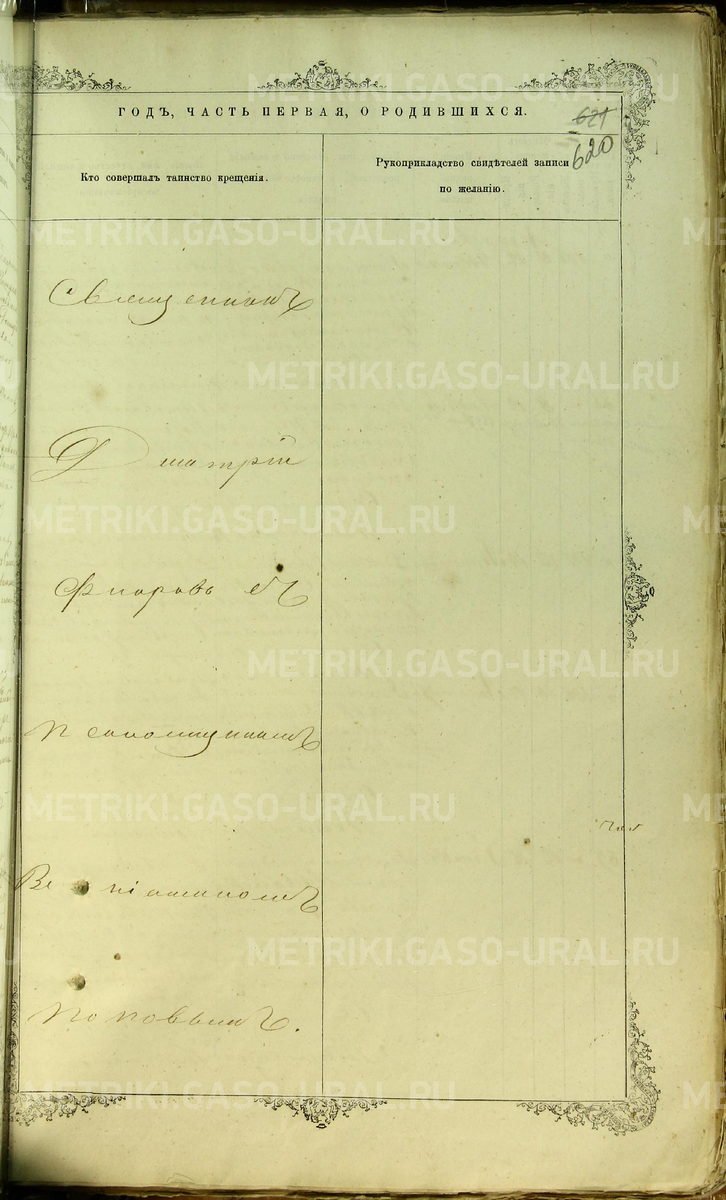 ГОДЪ, ЧАСТЬ ПЕРВАЯ, О РОДИВШИХСЯ.
621
620
Кто совершалъ таинство крещенія.
Рукоприкладство свидѣтелей записи
по желанію.
Священникъ
Дмитрій
съ
псаломщикомъ
Поповымъ.
METRIKI.GASO-URAL.RU
METRIKI.GASO-URAL.RU
METRIKI.GASO-URAL.RU
METRIKI.GASO-URAL.RU
METRIKI.GASO-URAL.RU
METRIKI.GASO-URAL.RU
METRIKI.GASO-URAL.RU
METRIKI.GASO-URAL.RU